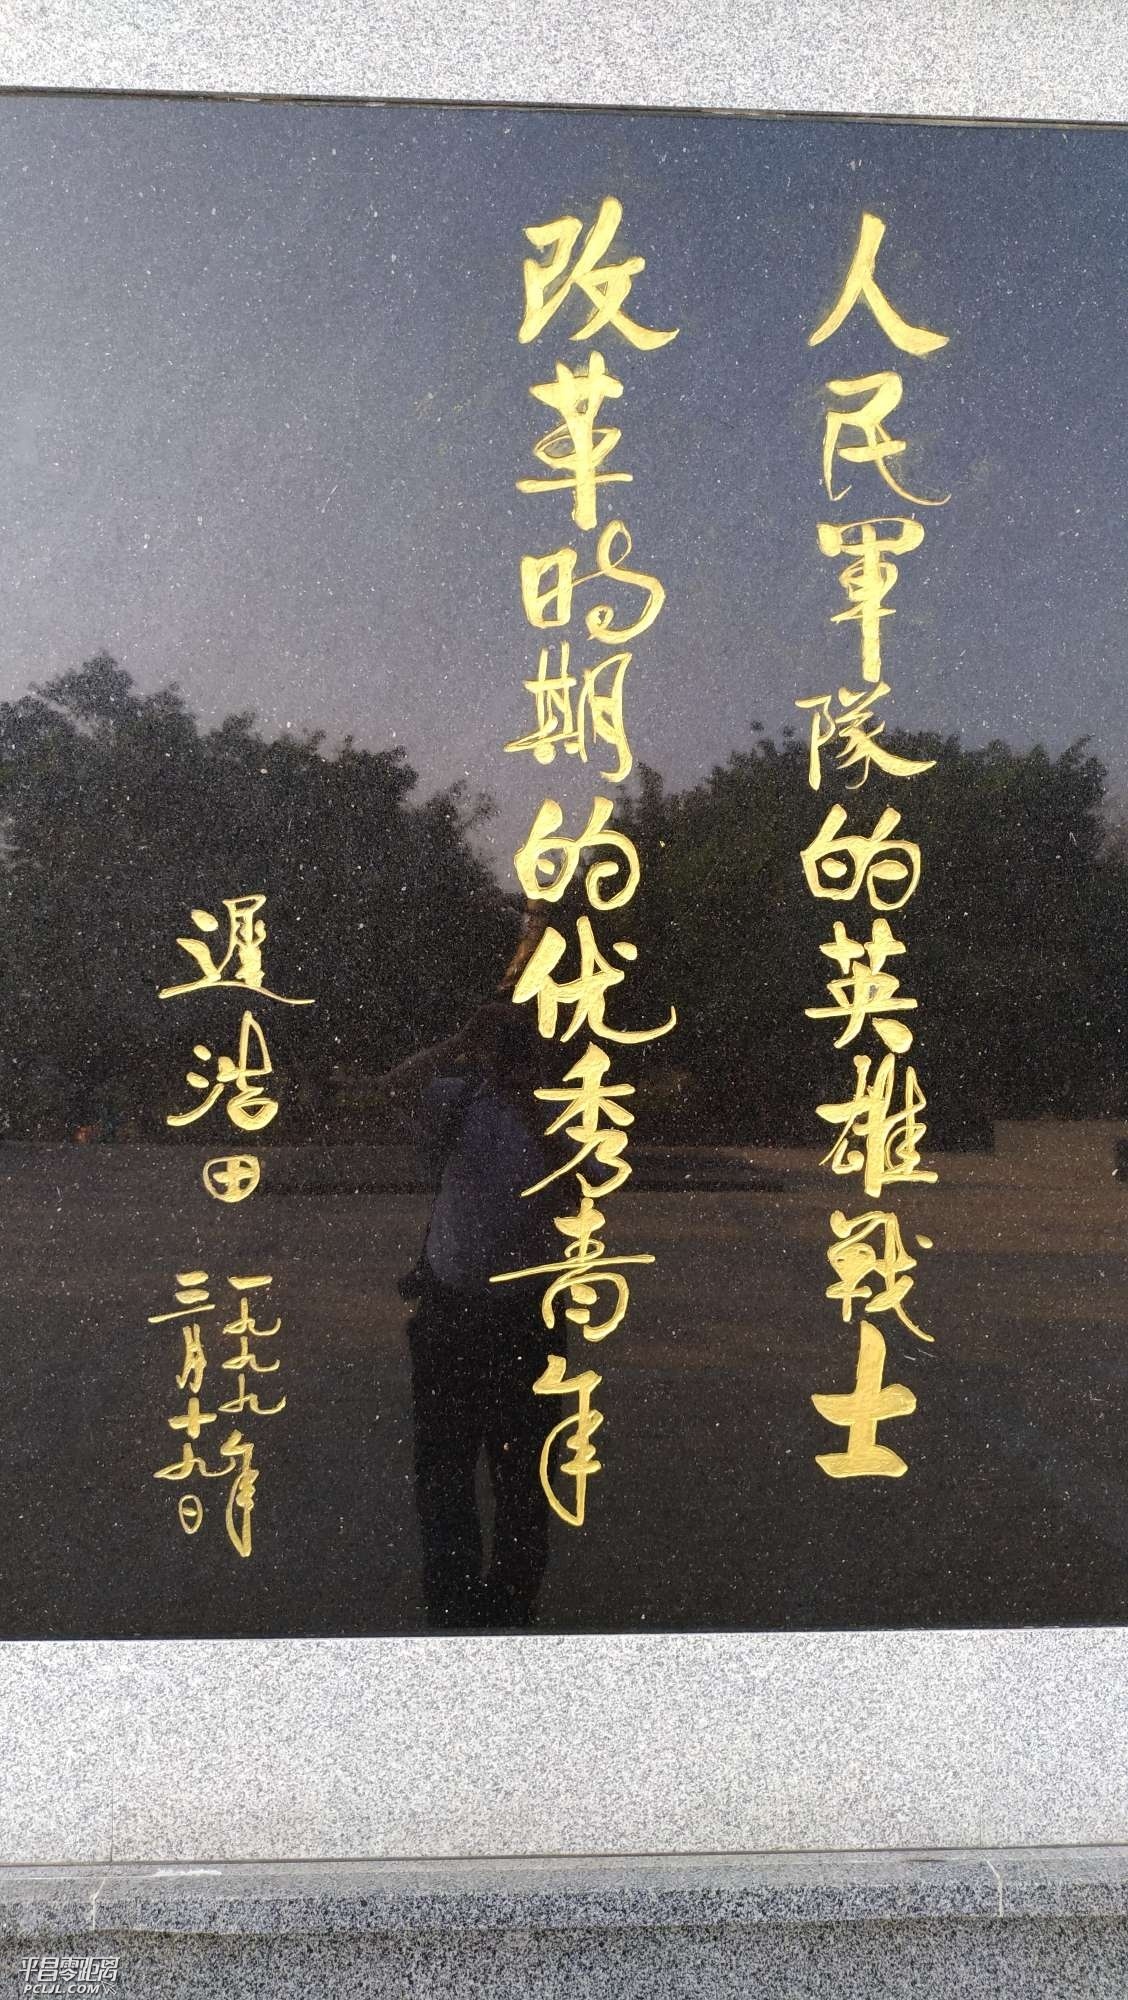 人民軍隊的英雄戰士
改革時期的优秀青年
遲浩田
一九九九年
三月十九日
平昌零距离
PCLJL.COM